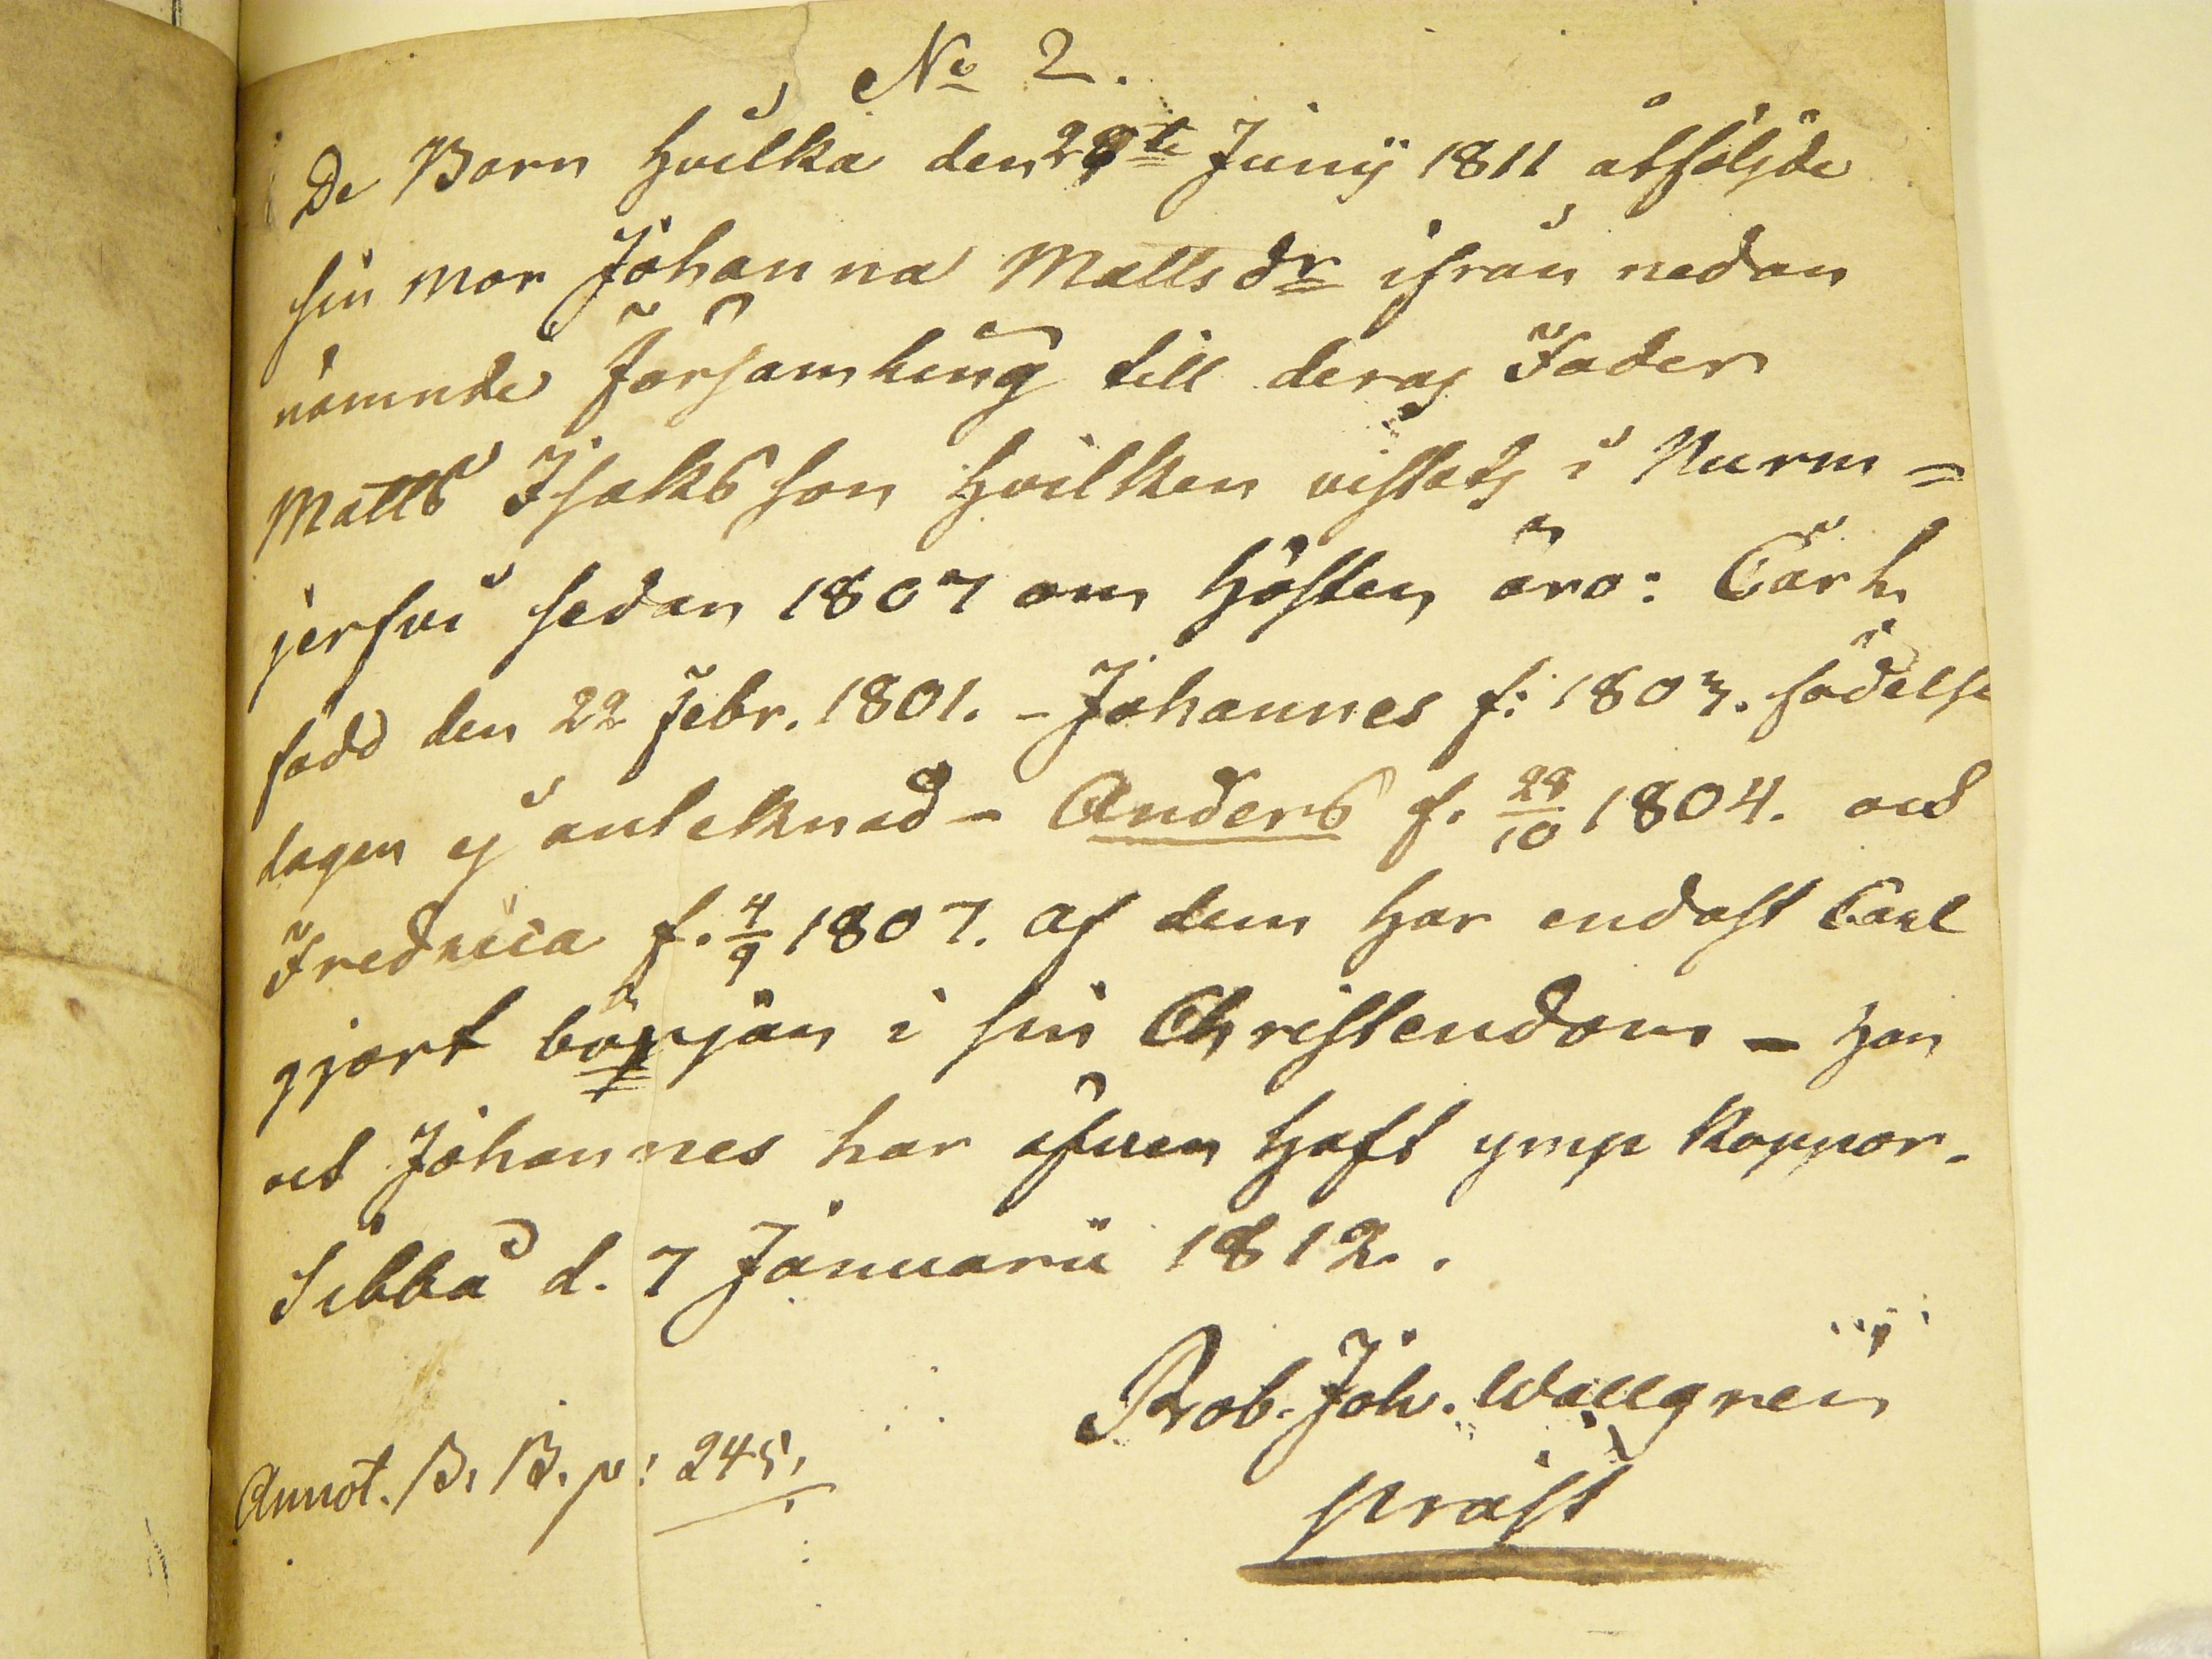 No 2.
De Barn hvilka den 28te Junij 1811 åtföljde
sin mor Johanna Matts dr ifrån nedan
nämnde Församling till deras Fader
Matts Isaksson hvilken vistats i Nurm=
jerfvi sedan 1807 om hösten äro: Carl
född den 22 Febr. 1801. - Johannes f: 1803. födelse
dagen ej anteknad - Anders f. 28/10 1804. och
Fredrica f. 4/9 1807. af dem har endast Carl
gjort början i sin Christendom - han
och Johannes har äfven haft ymp koppor.
Sibbå d. 7 Januarii 1812.
Rob. Joh. Wallgren
präst
Annot. B. B. p: 245.